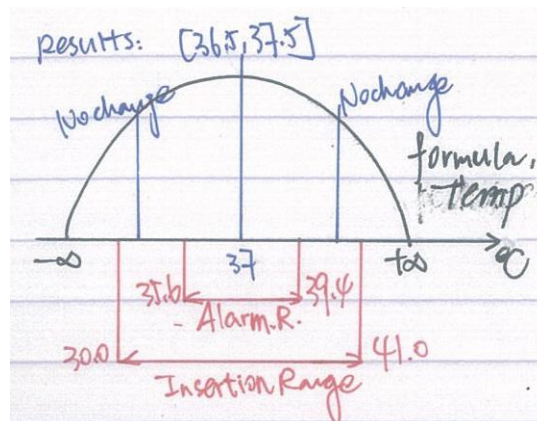 Results: [36.5, 37.5]
Nochange
Nochange
formula,
Temp
-∞
37
+∞
°C
35.6
39.4
Alarm.R.
30.0
41.0
Insertion Range